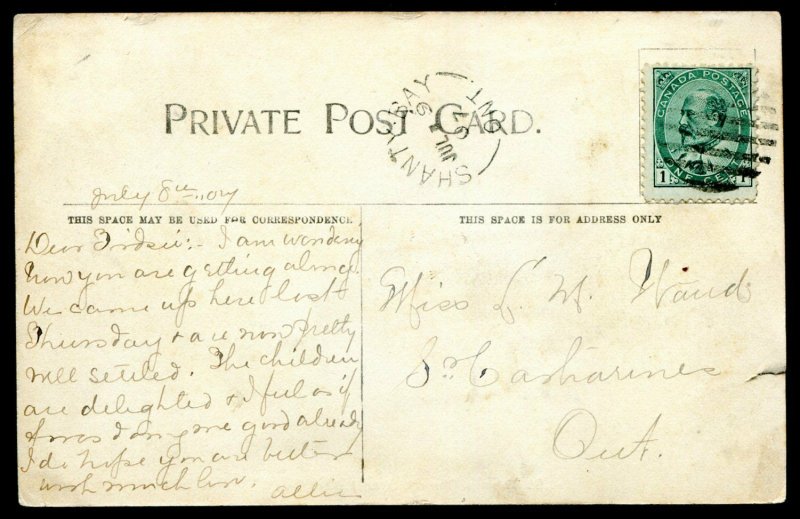 PRIVATE POST CARD.
SHANTY BAY
JUL 9
07
ONT
CANADA POSTAGE
1 ONE CENT 1
July 8th, 07
THIS SPACE MAY BE USED FOR CORRESPONDENCE
THIS SPACE IS FOR ADDRESS ONLY
Dear Birdsie:- I am wondering
how you are getting along.
We came up here last
Thursday & are now pretty
well settled. The children
are delighted & I feel as if
it was doing me good already
I do hope you are better
with much love. Allie
Miss L. W.
St Catharines
Ont.